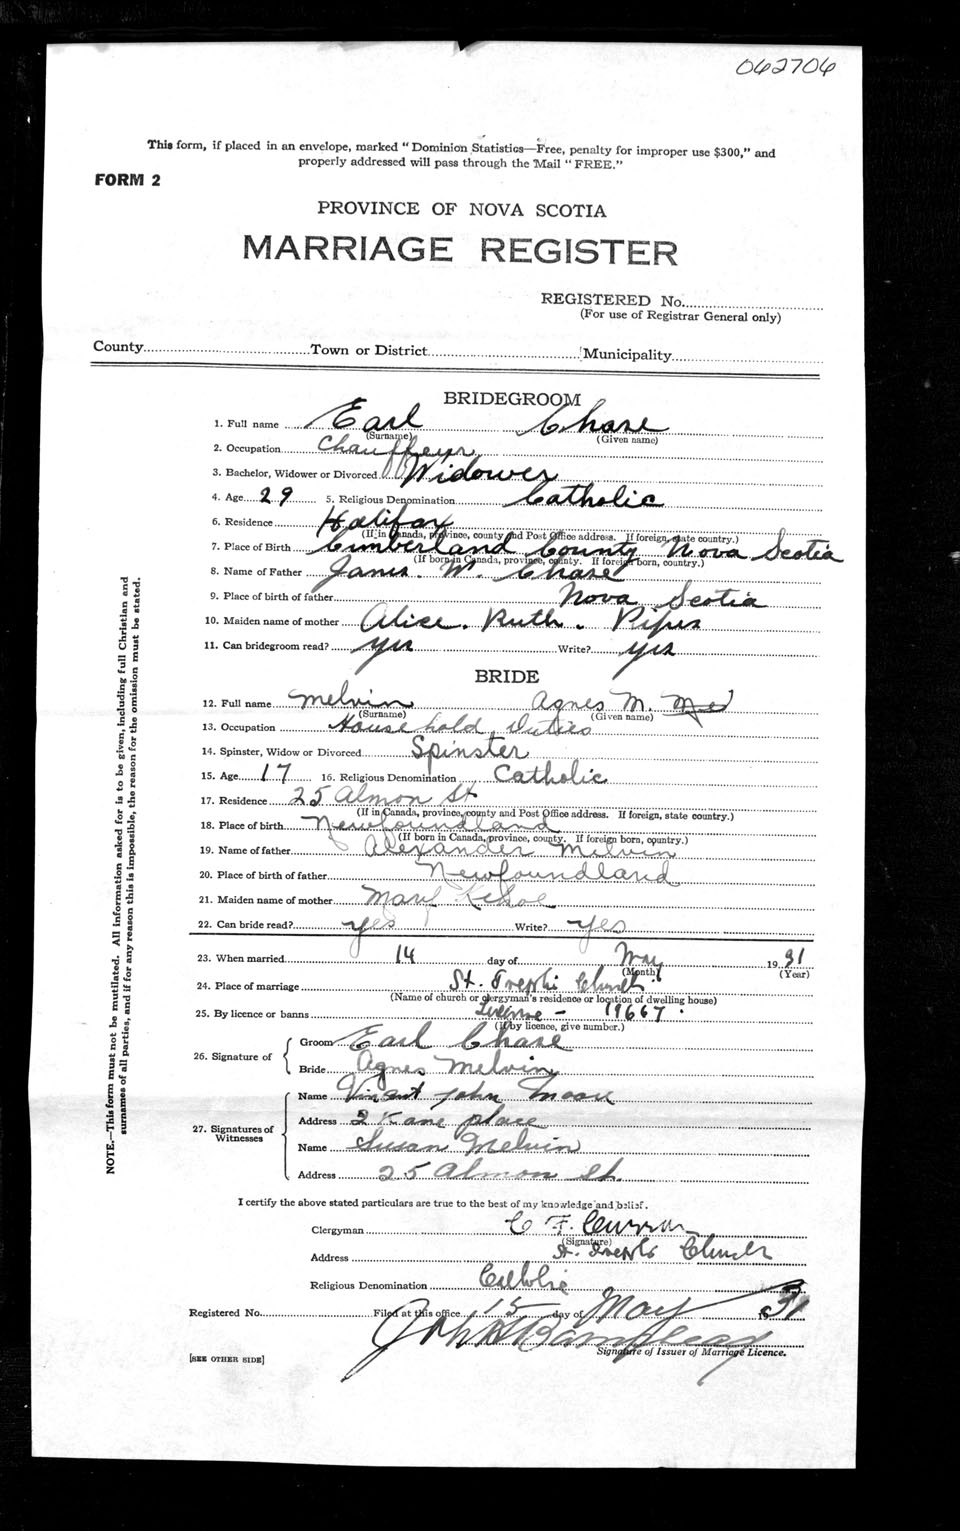 062706
This form, if placed in an envelope, marked "Dominion Statistics—Free, penalty for improper use $300," and
properly addressed will pass through the Mail "FREE."
FORM 2
PROVINCE OF NOVA SCOTIA
MARRIAGE REGISTER
REGISTERED No.
(For use of Registrar General only)
County Town or District Municipality
BRIDEGROOM
1. Full name Earl Chase
(Surname) (Given name)
2. Occupation Chauffeur
3. Bachelor, Widower or Divorced Widower
4. Age 29 5. Religious Denomination Catholic
6. Residence Halifax
(If in Canada, province, county and Post Office address. If foreign, state country.)
7. Place of Birth Cumberland County Nova Scotia
(If born in Canada, province, county. If foreign born, country.)
8. Name of Father James. W. Chase
9. Place of birth of father Nova Scotia
10. Maiden name of mother Alice. Ruth. Pipes
11. Can bridegroom read? yes Write? yes
BRIDE
12. Full name Melvin Agnes M.
(Surname) (Given name)
13. Occupation Household Duties
14. Spinster, Widow or Divorced Spinster
15. Age 17 16. Religious Denomination Catholic
17. Residence 25 Almon St
(If in Canada, province, county and Post Office address. If foreign, state country.)
18. Place of birth Newfoundland
(If born in Canada, province, county. If foreign born, country.)
19. Name of father Alexander Melvin
20. Place of birth of father Newfoundland
21. Maiden name of mother Mary Kehoe
22. Can bride read? yes Write? yes
23. When married 14 day of May 1931
(Month) (Year)
24. Place of marriage St. Joseph's Church
(Name of church or clergyman's residence or location of dwelling house)
25. By licence or banns License - 19667.
(If by licence, give number.)
26. Signature of
Groom Earl Chase
Bride Agnes Melvin
27. Signatures of Witnesses
Name Vincent John Moore
Address 2 Kane place
Name Susan Melvin
Address 25 Almon St.
I certify the above stated particulars are true to the best of my knowledge and belief.
Clergyman C F. Curran
(Signature)
Address St. Joseph's Church
Religious Denomination Catholic
Registered No. Filed at this office 15 day of May 1931
Signature of Issuer of Marriage Licence.
[SEE OTHER SIDE]
NOTE.—This form must not be mutilated. All information asked for is to be given, including full Christian and
surnames of all parties, and if for any reason this is impossible, the reason for the omission must be stated.